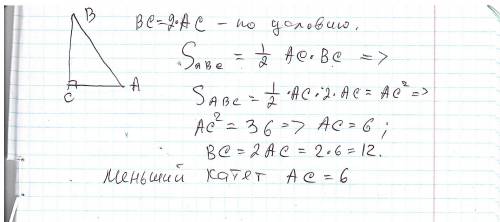 B
BC=2·AC - по условию.
S_ABC = 1/2 AC·BC =>
C A
S_ABC = 1/2 ·AC·2·AC = AC² =>
AC² = 36 => AC = 6;
BC = 2AC = 2·6 = 12.
Меньший катет AC = 6